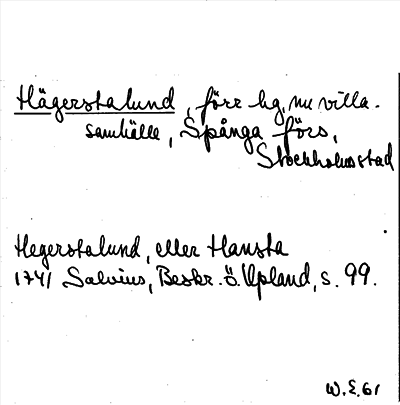 Hägerstalund, förr hg, nu villa-
samhälle, Spånga förs,
Stockholms stad
Hegerstalund, eller Hansta
1741 Salvius, Beskr. ö. Upland, s. 99.
W.E.61